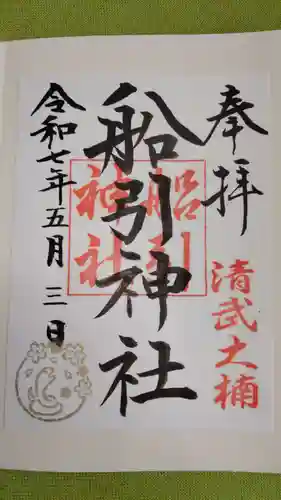 奉拝
清武大楠
船引神社
船引
神社
令和七年五月三日